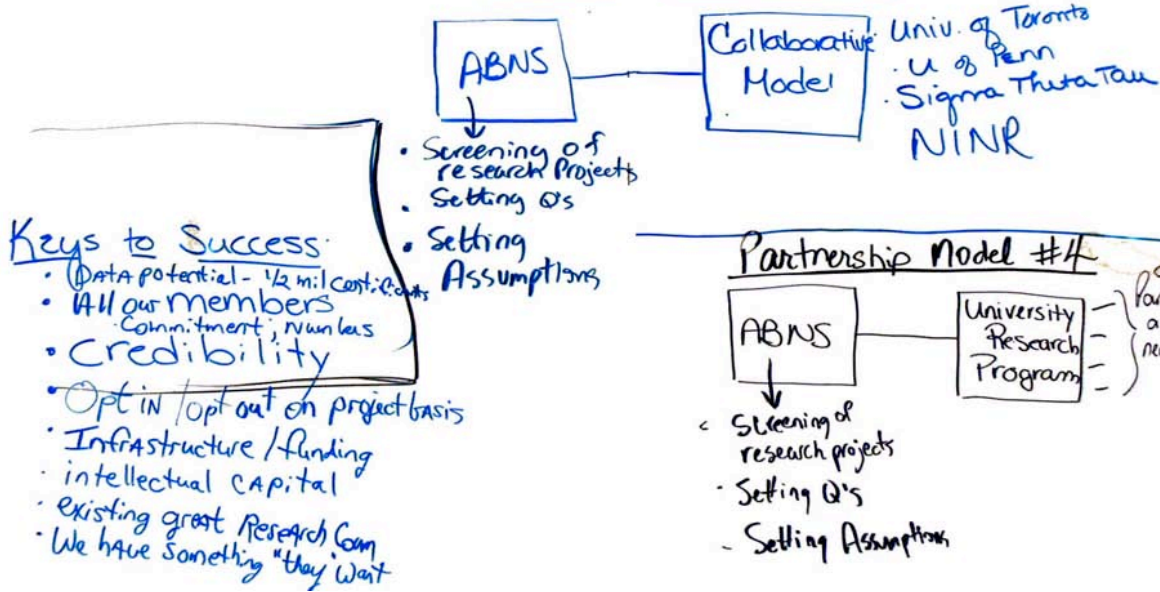 ABNS
Collaborative
Model
Univ. of Toronto
· U of Penn
· Sigma Theta Tau
NINR
• Screening of
research Projects
• Setting Q's
• Setting
Assumptions
Keys to Success
• Data potential - 1/2 mil certificants
• All our members
· Commitment, Numbers
• Credibility
• Opt in / opt out on project basis
• Infrastructure / funding
· intellectual capital
· existing great Research Com
· We have something "they" want
Partnership Model #4
ABNS
University
Research
Program
Screening of
research projects
· Setting Q's
- Setting Assumptions